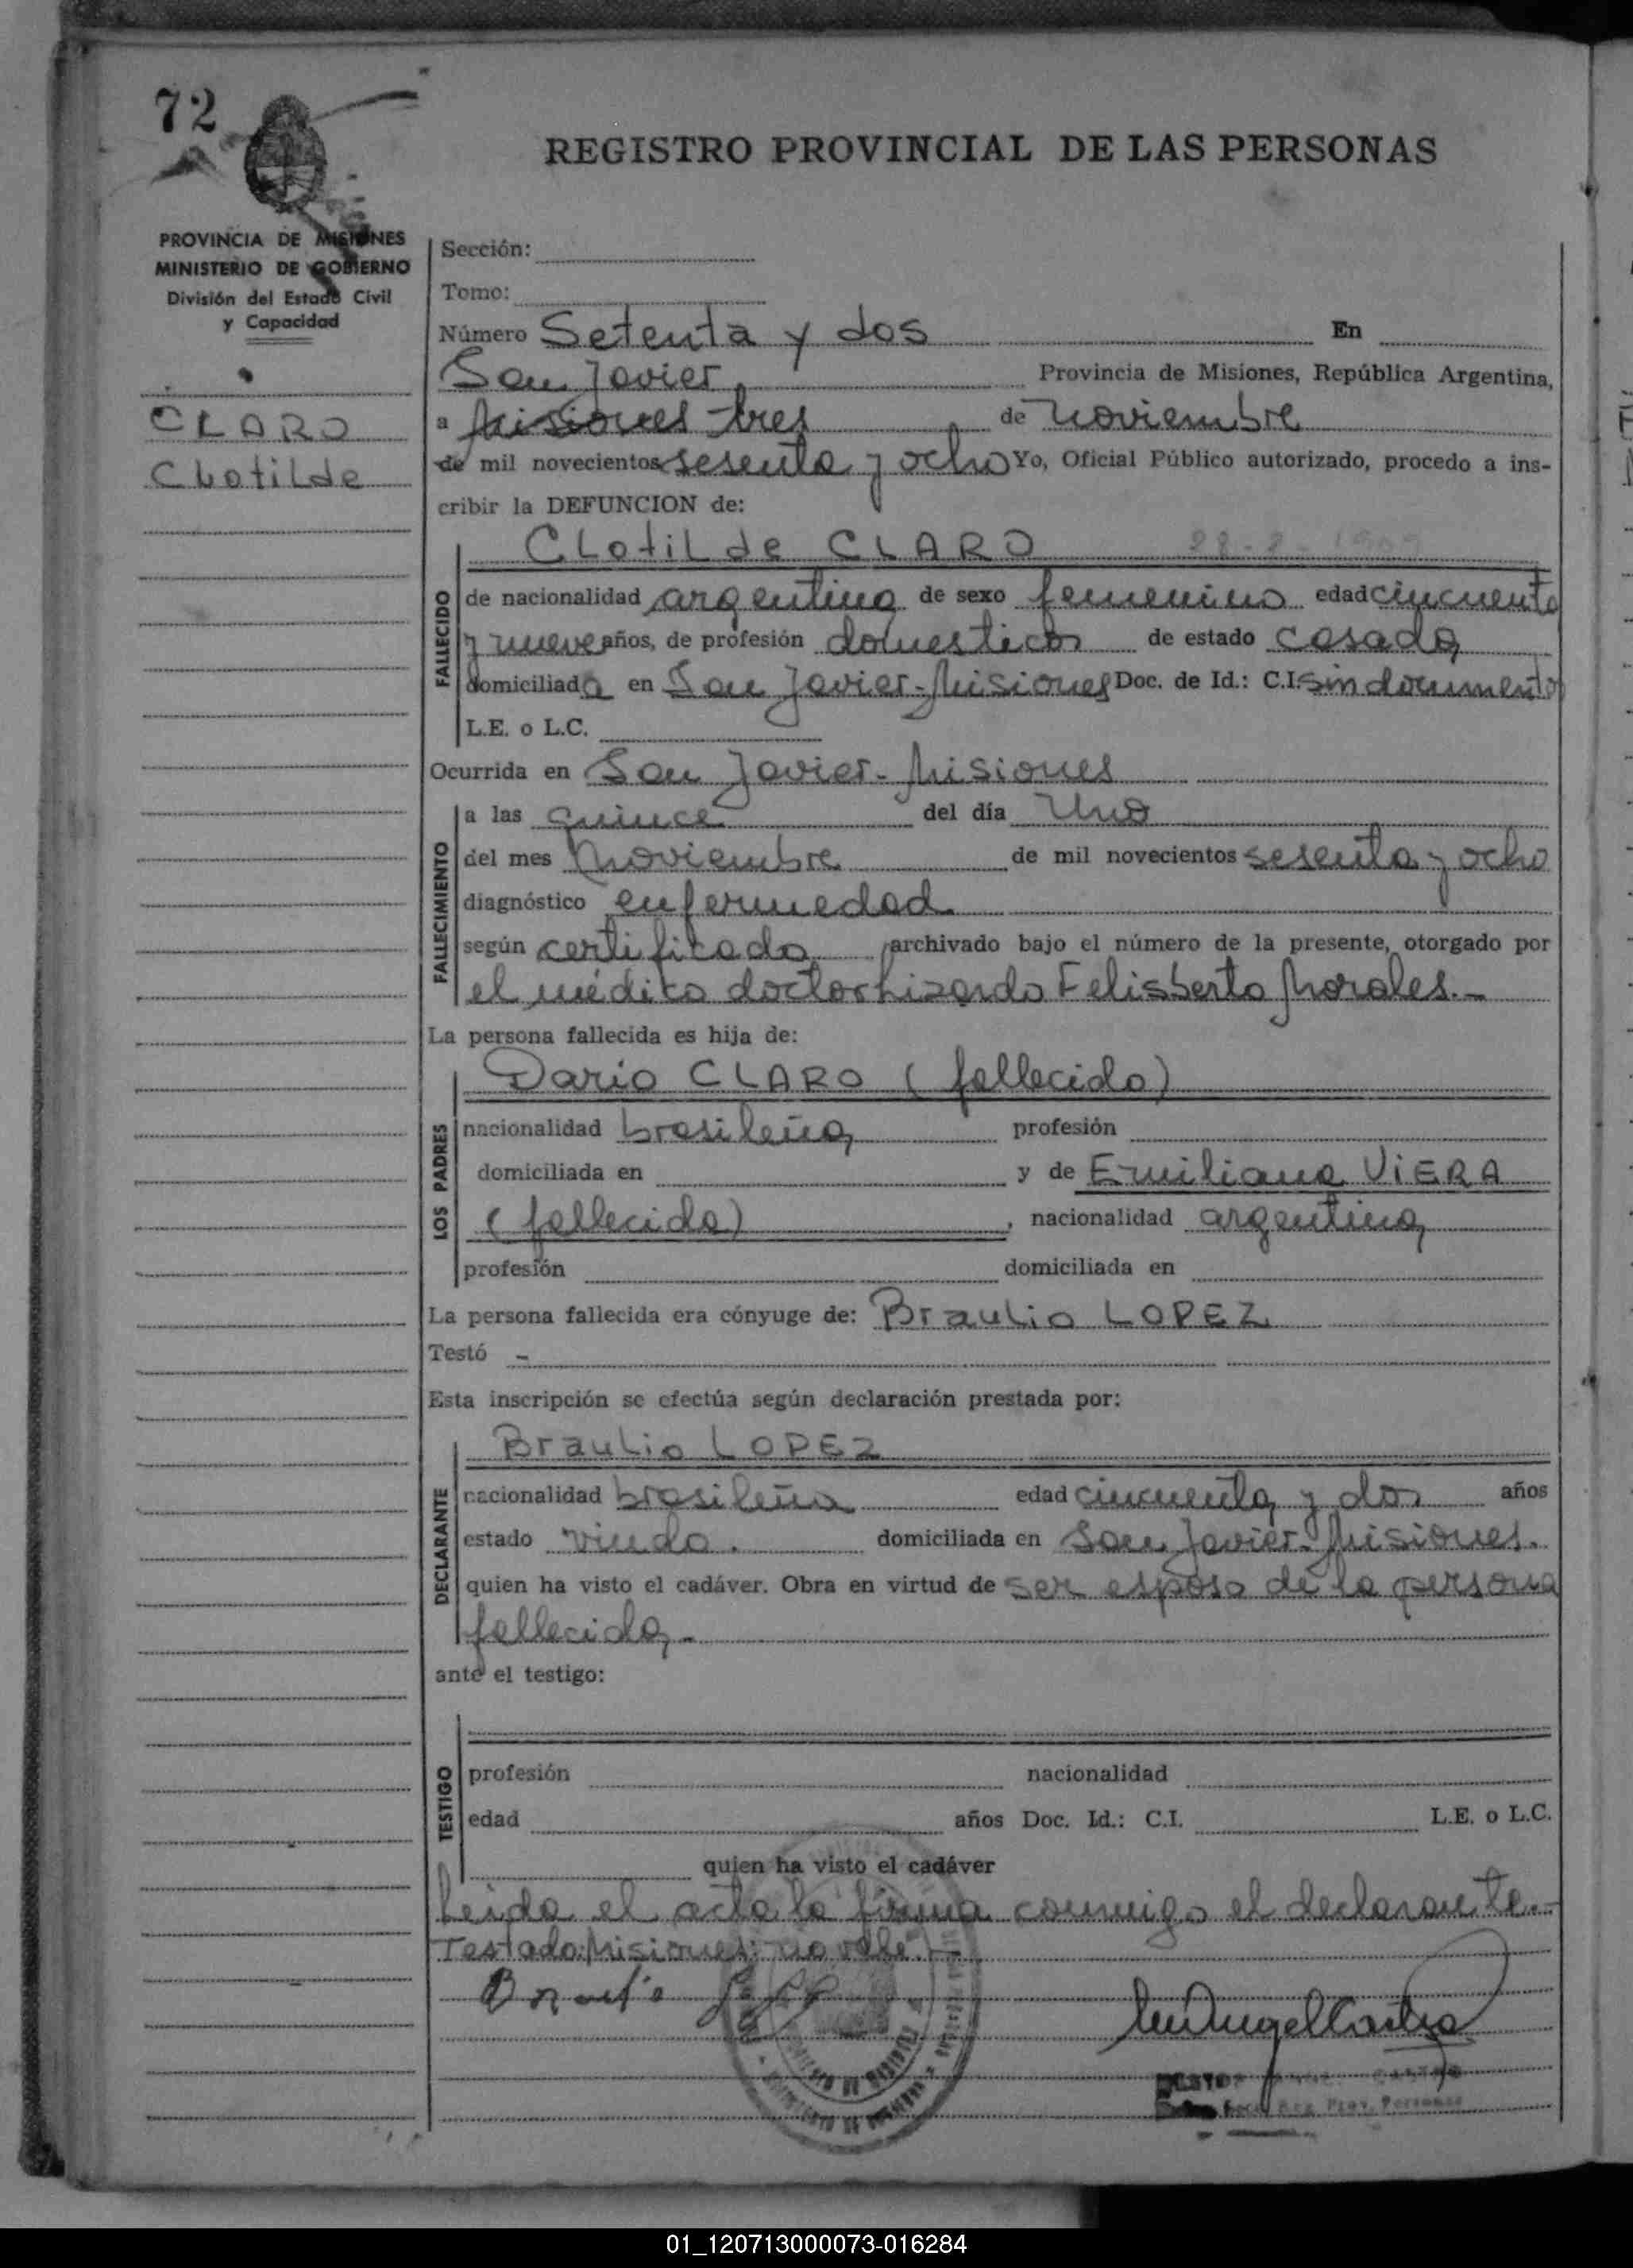 72
REGISTRO PROVINCIAL DE LAS PERSONAS
PROVINCIA DE MISIONES
MINISTERIO DE GOBIERNO
División del Estado Civil
y Capacidad
CLARO
Clotilde
Sección:
Tomo:
Número Setenta y dos En
San Javier, Provincia de Misiones, República Argentina,
a Misiones tres de noviembre
de mil novecientos sesenta y ocho Yo, Oficial Público autorizado, procedo a ins-
cribir la DEFUNCION de:
Clotilde CLARO 28-2-1909
FALLECIDO
de nacionalidad argentina de sexo femenino edad cincuenta
y nueve años, de profesión domestica de estado casada
domiciliada en San Javier-Misiones Doc. de Id.: C.I. sin documento
L.E. o L.C.
Ocurrida en San Javier-Misiones
FALLECIMIENTO
a las quince del día Uno
del mes Noviembre de mil novecientos sesenta y ocho
diagnóstico enfermedad
según certificado archivado bajo el número de la presente, otorgado por
el médico doctor Lizardo Felisberto Morales.-
La persona fallecida es hija de:
Dario CLARO (fallecido)
LOS PADRES
nacionalidad brasileña profesión
domiciliada en y de Emiliana ViERA
(fallecida), nacionalidad argentina
profesión domiciliada en
La persona fallecida era cónyuge de: Braulio LOPEZ
Testó -
Esta inscripción se efectúa según declaración prestada por:
Braulio LOPEZ
DECLARANTE
nacionalidad brasileña edad cincuenta y dos años
estado viudo. domiciliada en San Javier-Misiones.
quien ha visto el cadáver. Obra en virtud de ser esposo de la persona
fallecida.-
ante el testigo:
TESTIGO
profesión nacionalidad
edad años Doc. Id.: C.I. L.E. o L.C.
quien ha visto el cadáver
Leida el acta la firma conmigo el declarante.-
Testado: Misiones: no vale.-
CASTRO
Reg. Prov. Personas
01_120713000073-016284